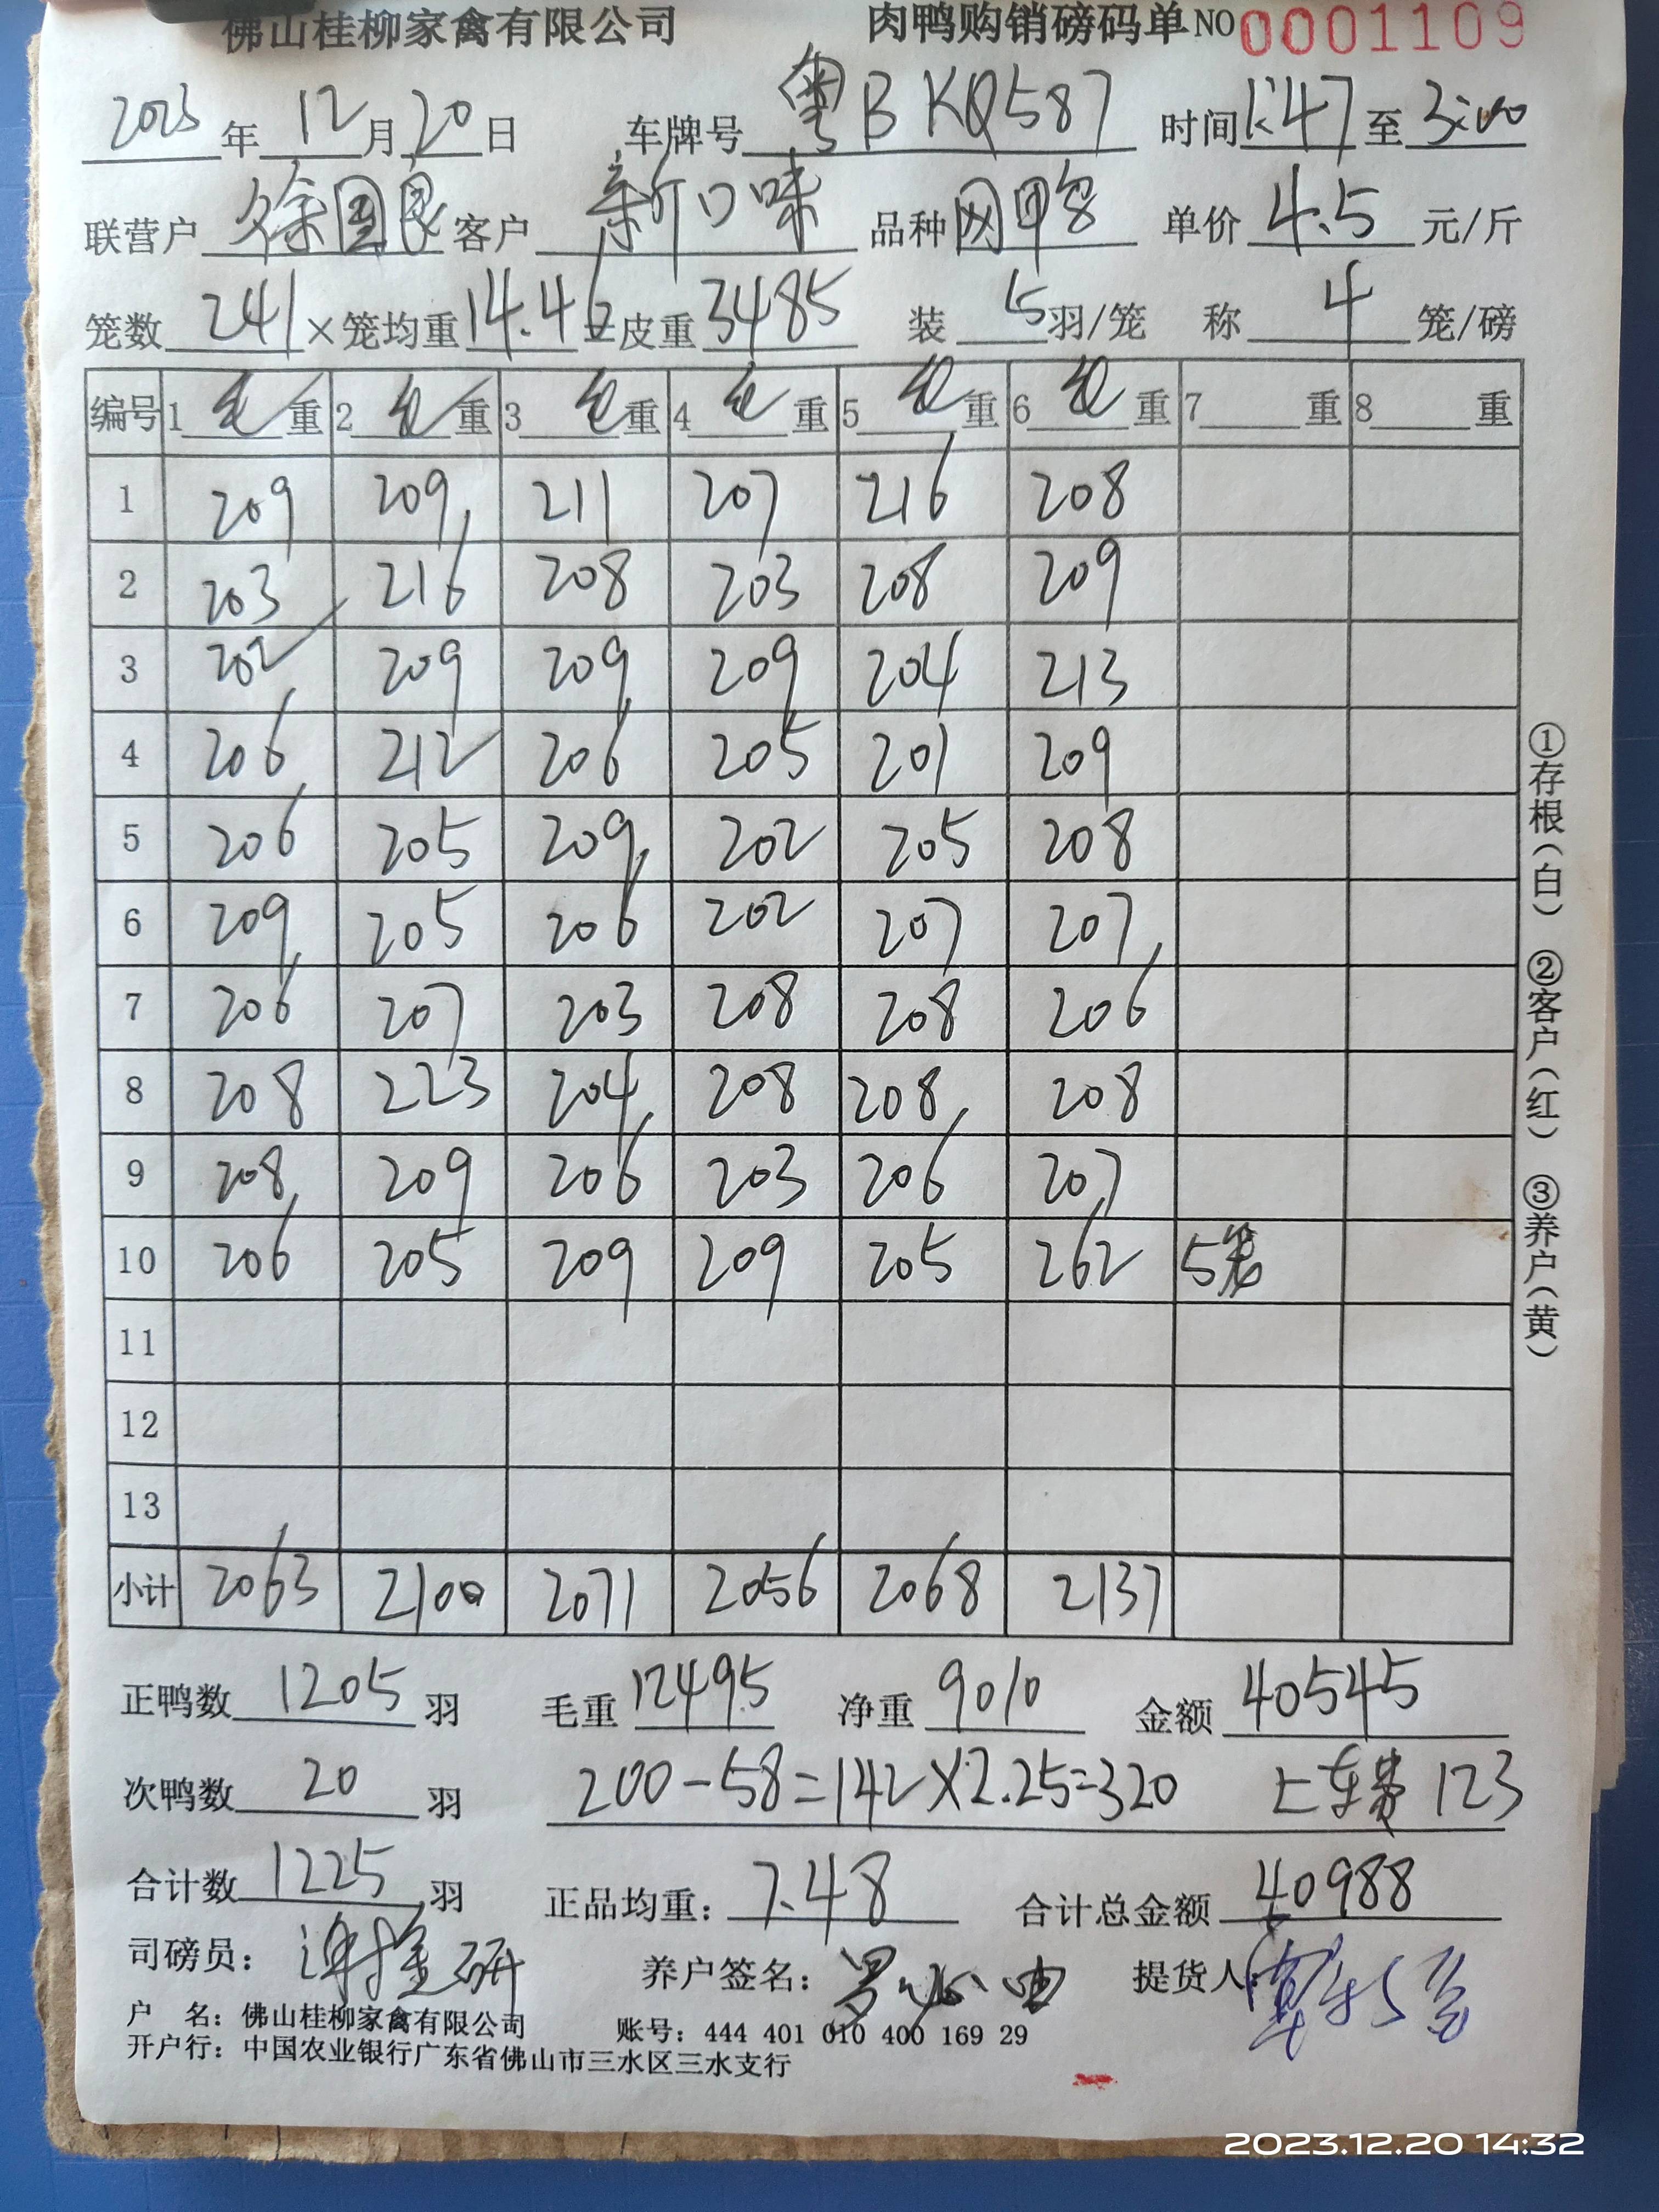 佛山桂柳家禽有限公司 肉鸭购销磅码单 NO 0001109
2023年12月20日 车牌号 粤B KQ587 时间 1:47 至 3:00
联营户 徐国良 客户 新口味 品种 网甲鸟 单价 4.5 元/斤
笼数 241 × 笼均重 14.46 = 皮重 3485 装 5 羽/笼 称 4 笼/磅
编号 1 毛 重 2 毛 重 3 毛 重 4 毛 重 5 毛 重 6 毛 重 7 重 8 重
1 209 209 211 207 216 208
2 203 216 208 203 208 209
3 202 209 209 209 204 213
4 206 212 206 205 201 209
5 206 205 209 202 205 208
6 209 205 206 202 207 207
7 206 207 203 208 208 206
8 208 223 204 208 208 208
9 208 209 206 203 206 207
10 206 205 209 209 205 262 5笼
11
12
13
小计 2063 2100 2071 2056 2068 2137
正鸭数 1205 羽 毛重 12495 净重 9010 金额 40545
次鸭数 20 羽 200-58=142×2.25=320 上车费 123
合计数 1225 羽 正品均重: 7.48 合计总金额 40988
司磅员: 养户签名: 提货人:
户 名: 佛山桂柳家禽有限公司 账号: 444 401 010 400 169 29
开户行: 中国农业银行广东省佛山市三水区三水支行
①存根(白) ②客户(红) ③养户(黄)
2023.12.20 14:32